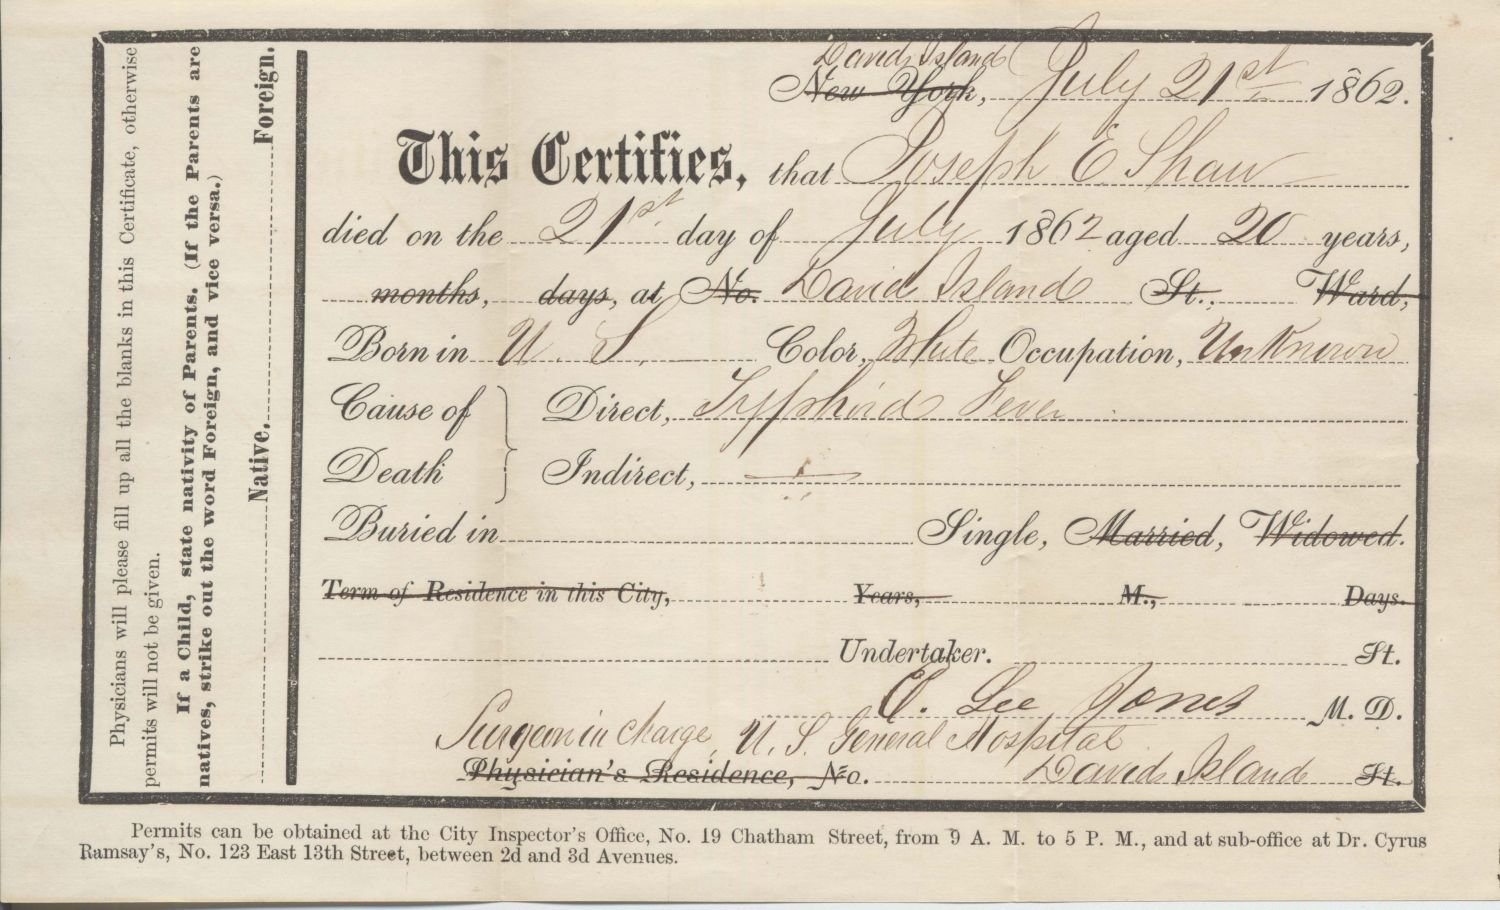 Physicians will please fill up all the blanks in this Certificate, otherwise
permits will not be given.
If a Child, state nativity of Parents. (If the Parents are
natives, strike out the word Foreign, and vice versa.)
Native. Foreign.
Davids Island
New York, July 21st 1862.
This Certifies, that Joseph E Shaw
died on the 21st day of July 1862 aged 20 years,
months, days, at No. David Island St., Ward,
Born in U. S. Color, White Occupation, Unknown
Cause of Direct, Typphoid Fever
Death Indirect,
Buried in Single, Married, Widowed.
Term of Residence in this City, Years, M., Days.
Undertaker. St.
Lee Jones M. D.
Surgeon in charge, U. S. General Hospital
Physician's Residence, No. Davids Island St.
Permits can be obtained at the City Inspector's Office, No. 19 Chatham Street, from 9 A. M. to 5 P. M., and at sub-office at Dr. Cyrus
Ramsay's, No. 123 East 13th Street, between 2d and 3d Avenues.